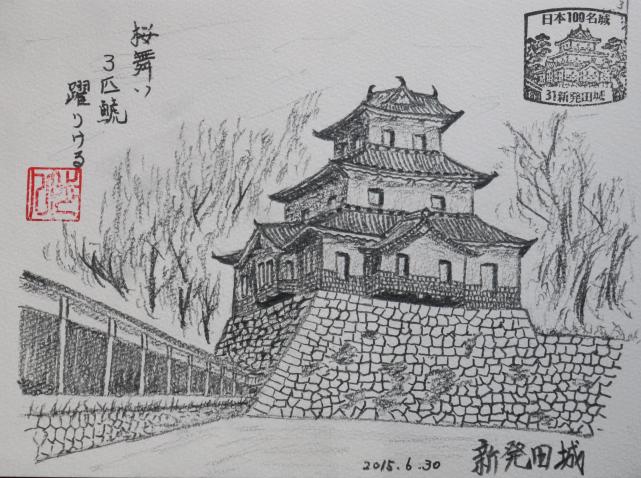 桜舞い
3匹鯱
躍りける
日本100名城
31新発田城
2015.6.30
新発田城